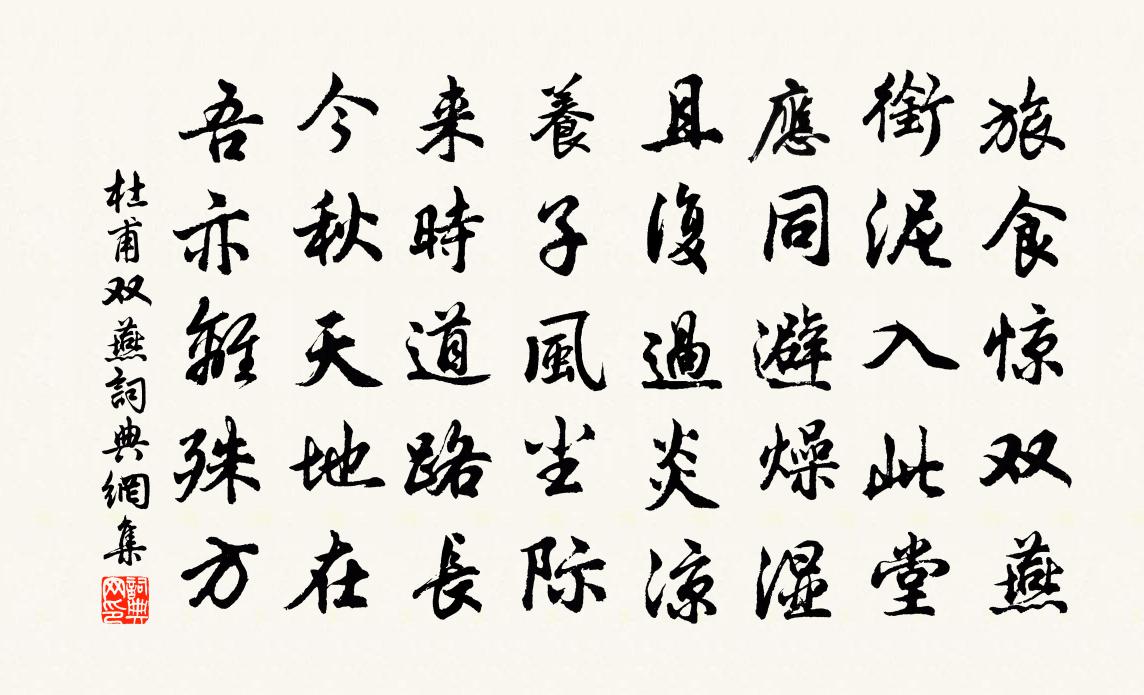 旅食惊双燕
銜泥入此堂
應同避燥湿
且復過炎凉
養子風尘际
来時道路長
今秋天地在
吾亦離殊方
杜甫双燕詞典網集
詞典網印